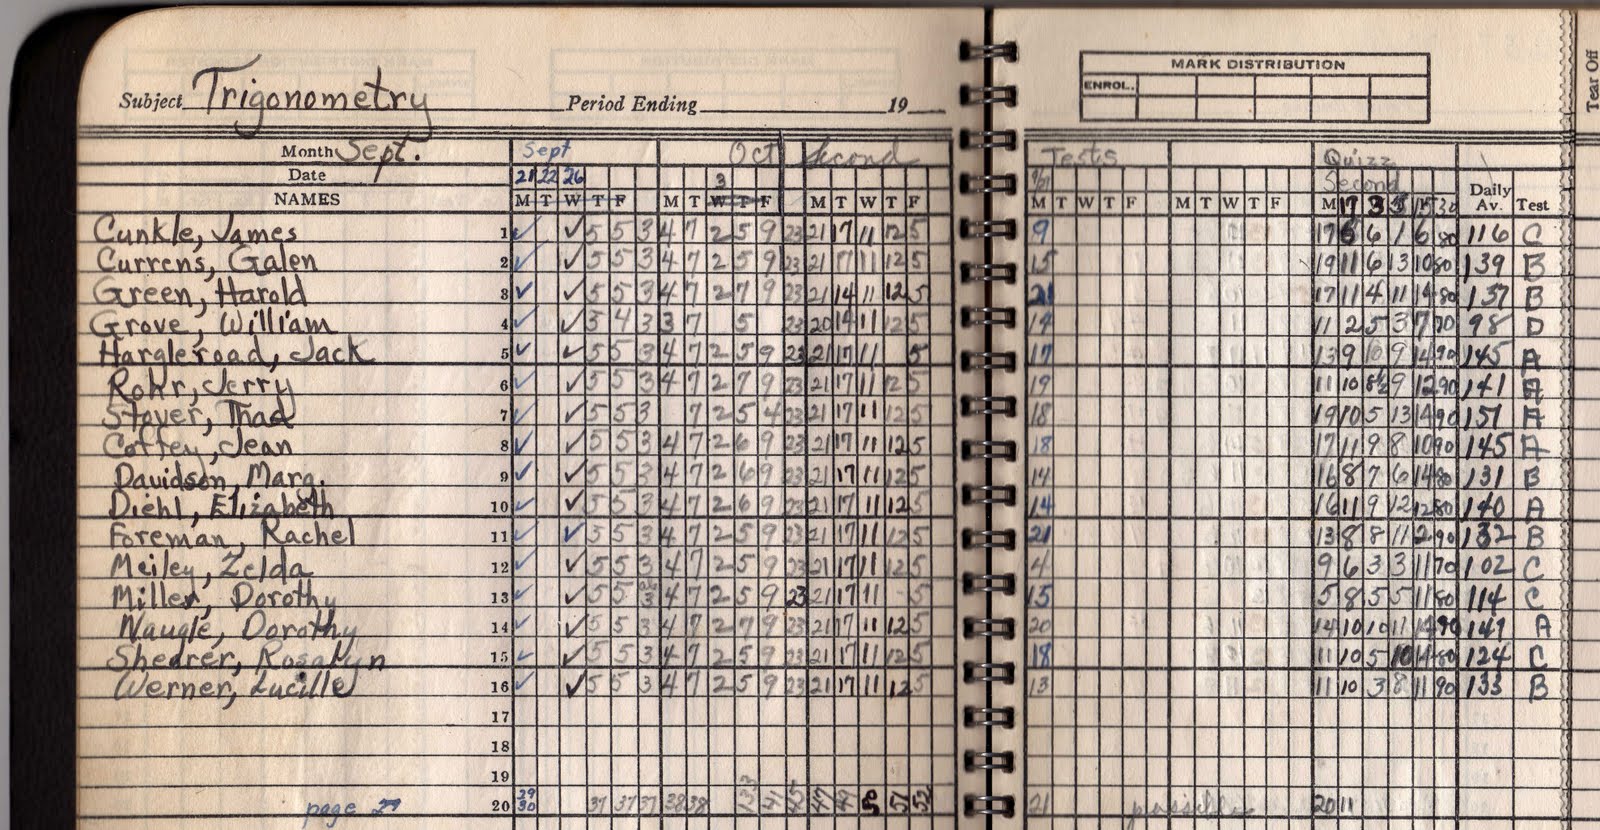 Subject Trigonometry Period Ending 19
MARK DISTRIBUTION
ENROL.
Tear Off
Month Sept. Sept Oct Second Tests Quizz
Date 21 22 26 3 9/21 Second Daily
NAMES M T W T F M T W T F M T W T F M T W T F M T W T F M 17 3 3 15 30 Av. Test
Cunkle, James 1 ✓ ✓ 5 5 3 4 7 2 5 9 23 21 17 11 12 5 9 17 6 6 1 6 80 116 C
Currens, Galen 2 ✓ ✓ 5 5 3 4 7 2 5 9 23 21 17 11 12 5 15 19 11 6 13 10 80 139 B
Green, Harold 3 ✓ ✓ 5 5 3 4 7 2 7 9 23 21 14 11 12 5 21 17 11 4 11 14 80 137 B
Grove, William 4 ✓ ✓ 3 4 3 3 7 5 23 20 14 11 12 5 14 11 2 5 3 7 70 98 D
Hargleroad, Jack 5 ✓ ✓ 5 5 3 4 7 2 5 9 23 21 17 11 5 17 13 9 10 9 14 90 145 A
Rohr, Jerry 6 ✓ ✓ 5 5 3 4 7 2 7 9 23 21 17 11 12 5 19 11 10 8½ 9 12 90 141 A
Stover, Thad 7 ✓ ✓ 5 5 3 7 2 5 4 23 21 17 11 12 5 18 19 10 5 13 14 90 151 A
Coffey, Jean 8 ✓ ✓ 5 5 3 4 7 2 6 9 23 21 17 11 12 5 18 17 11 9 8 10 90 145 A
Davidson, Marg. 9 ✓ ✓ 5 5 3 4 7 2 6 9 23 21 17 11 12 5 14 16 8 7 6 14 80 131 B
Diehl, Elizabeth 10 ✓ ✓ 5 5 3 4 7 2 6 9 23 21 17 11 12 5 14 16 11 9 12 12 80 140 A
Foreman, Rachel 11 ✓ ✓ 5 5 3 4 7 2 5 9 23 21 17 11 12 5 21 13 8 8 11 2 90 132 B
Meiley, Zelda 12 ✓ ✓ 5 5 3 4 7 2 5 9 23 21 17 11 12 5 4 9 6 3 3 11 70 102 C
Miller, Dorothy 13 ✓ ✓ 5 5 3 4 7 2 5 9 23 21 17 11 5 15 5 8 5 5 11 80 114 C
Naugle, Dorothy 14 ✓ ✓ 5 5 3 4 7 2 7 9 23 21 17 11 12 5 20 14 10 10 11 14 90 149 A
Shearer, Rosalyn 15 ✓ ✓ 5 5 3 4 7 2 5 9 23 21 17 11 12 5 18 11 10 5 10 14 80 124 C
Werner, Lucille 16 ✓ ✓ 5 5 3 4 7 2 5 9 23 21 17 11 12 5 13 11 10 3 8 11 90 133 B
17
18
19
page 29 20 29 30 37 37 37 38 38 41 45 47 49 50 51 52 21 possible 20 11